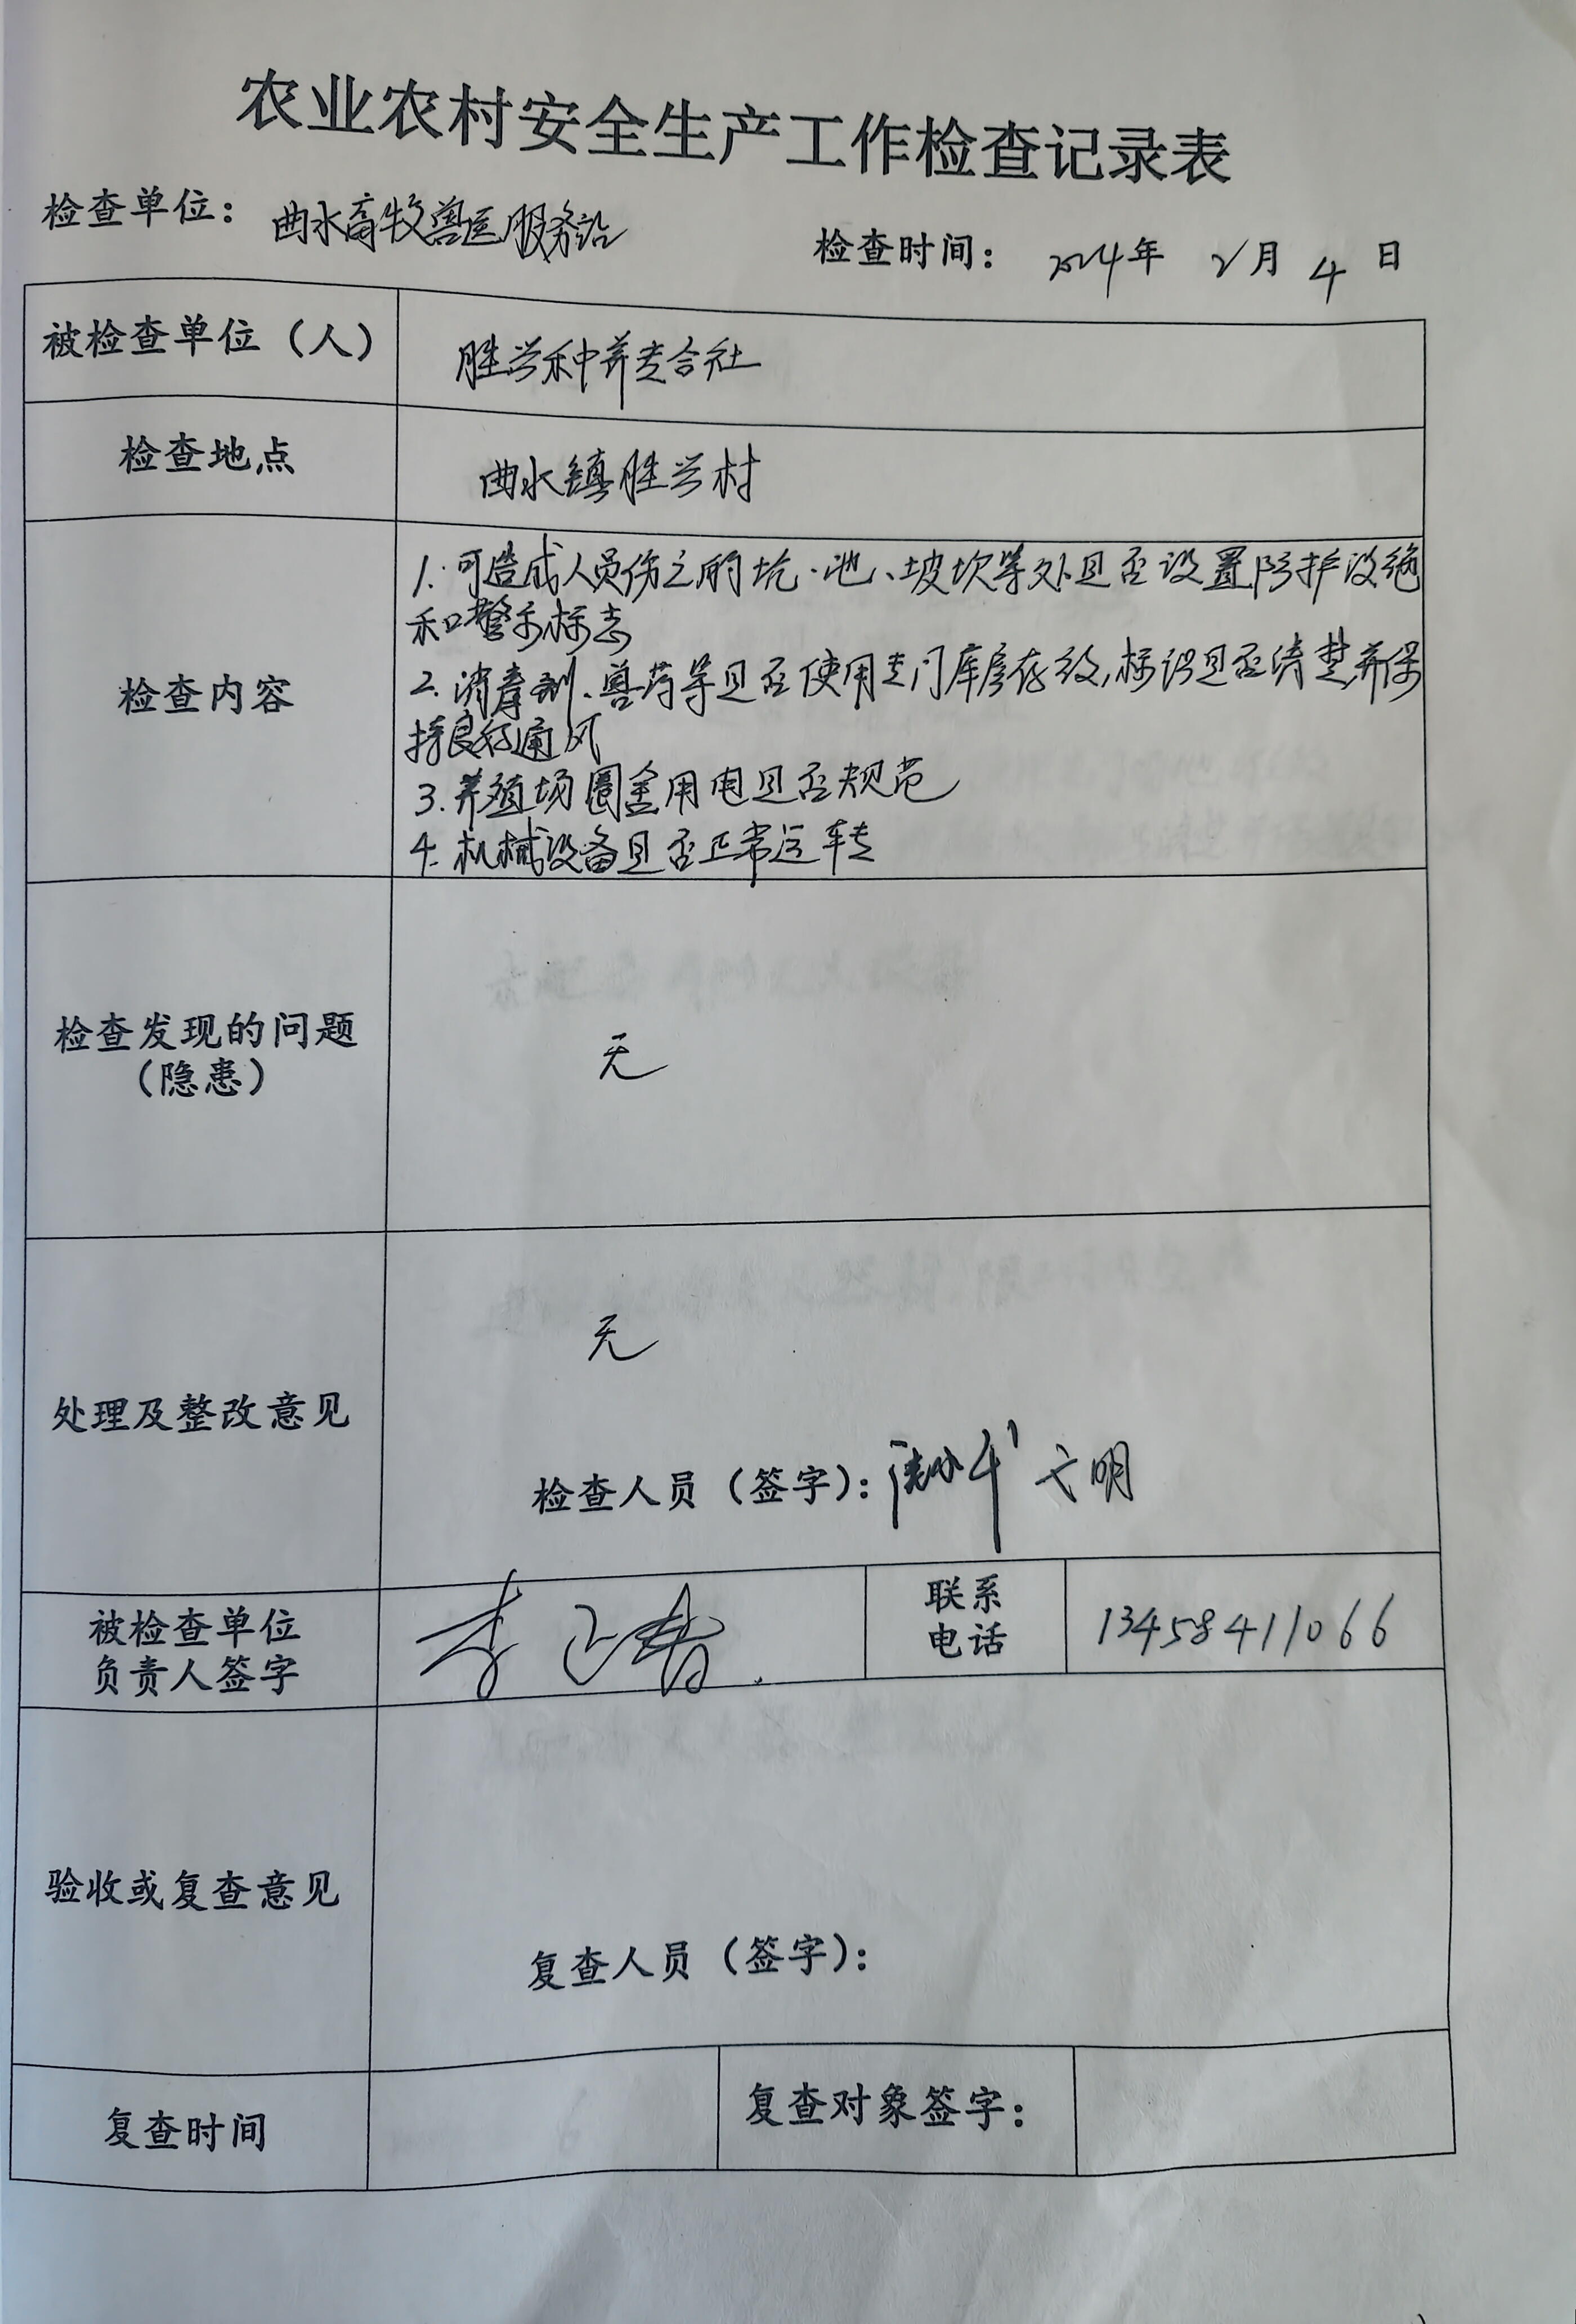 农业农村安全生产工作检查记录表
检查单位：曲水畜牧兽医服务站
检查时间：2024年 2月 4 日
被检查单位（人） 胜兴种养专合社
检查地点 曲水镇胜兴村
检查内容
1.可造成人员伤亡的坑、池、坡坎等处是否设置防护设施
和警示标志
2.消毒剂、兽药等是否使用专门库房存放,标识是否清楚,并保
持良好通风
3.养殖场圈舍用电是否规范
4.机械设备是否正常运转
检查发现的问题
（隐患）
无
处理及整改意见
无
检查人员（签字）： 明
被检查单位
负责人签字
李正
联系
电话
13458411066
验收或复查意见
复查人员（签字）：
复查时间
复查对象签字：